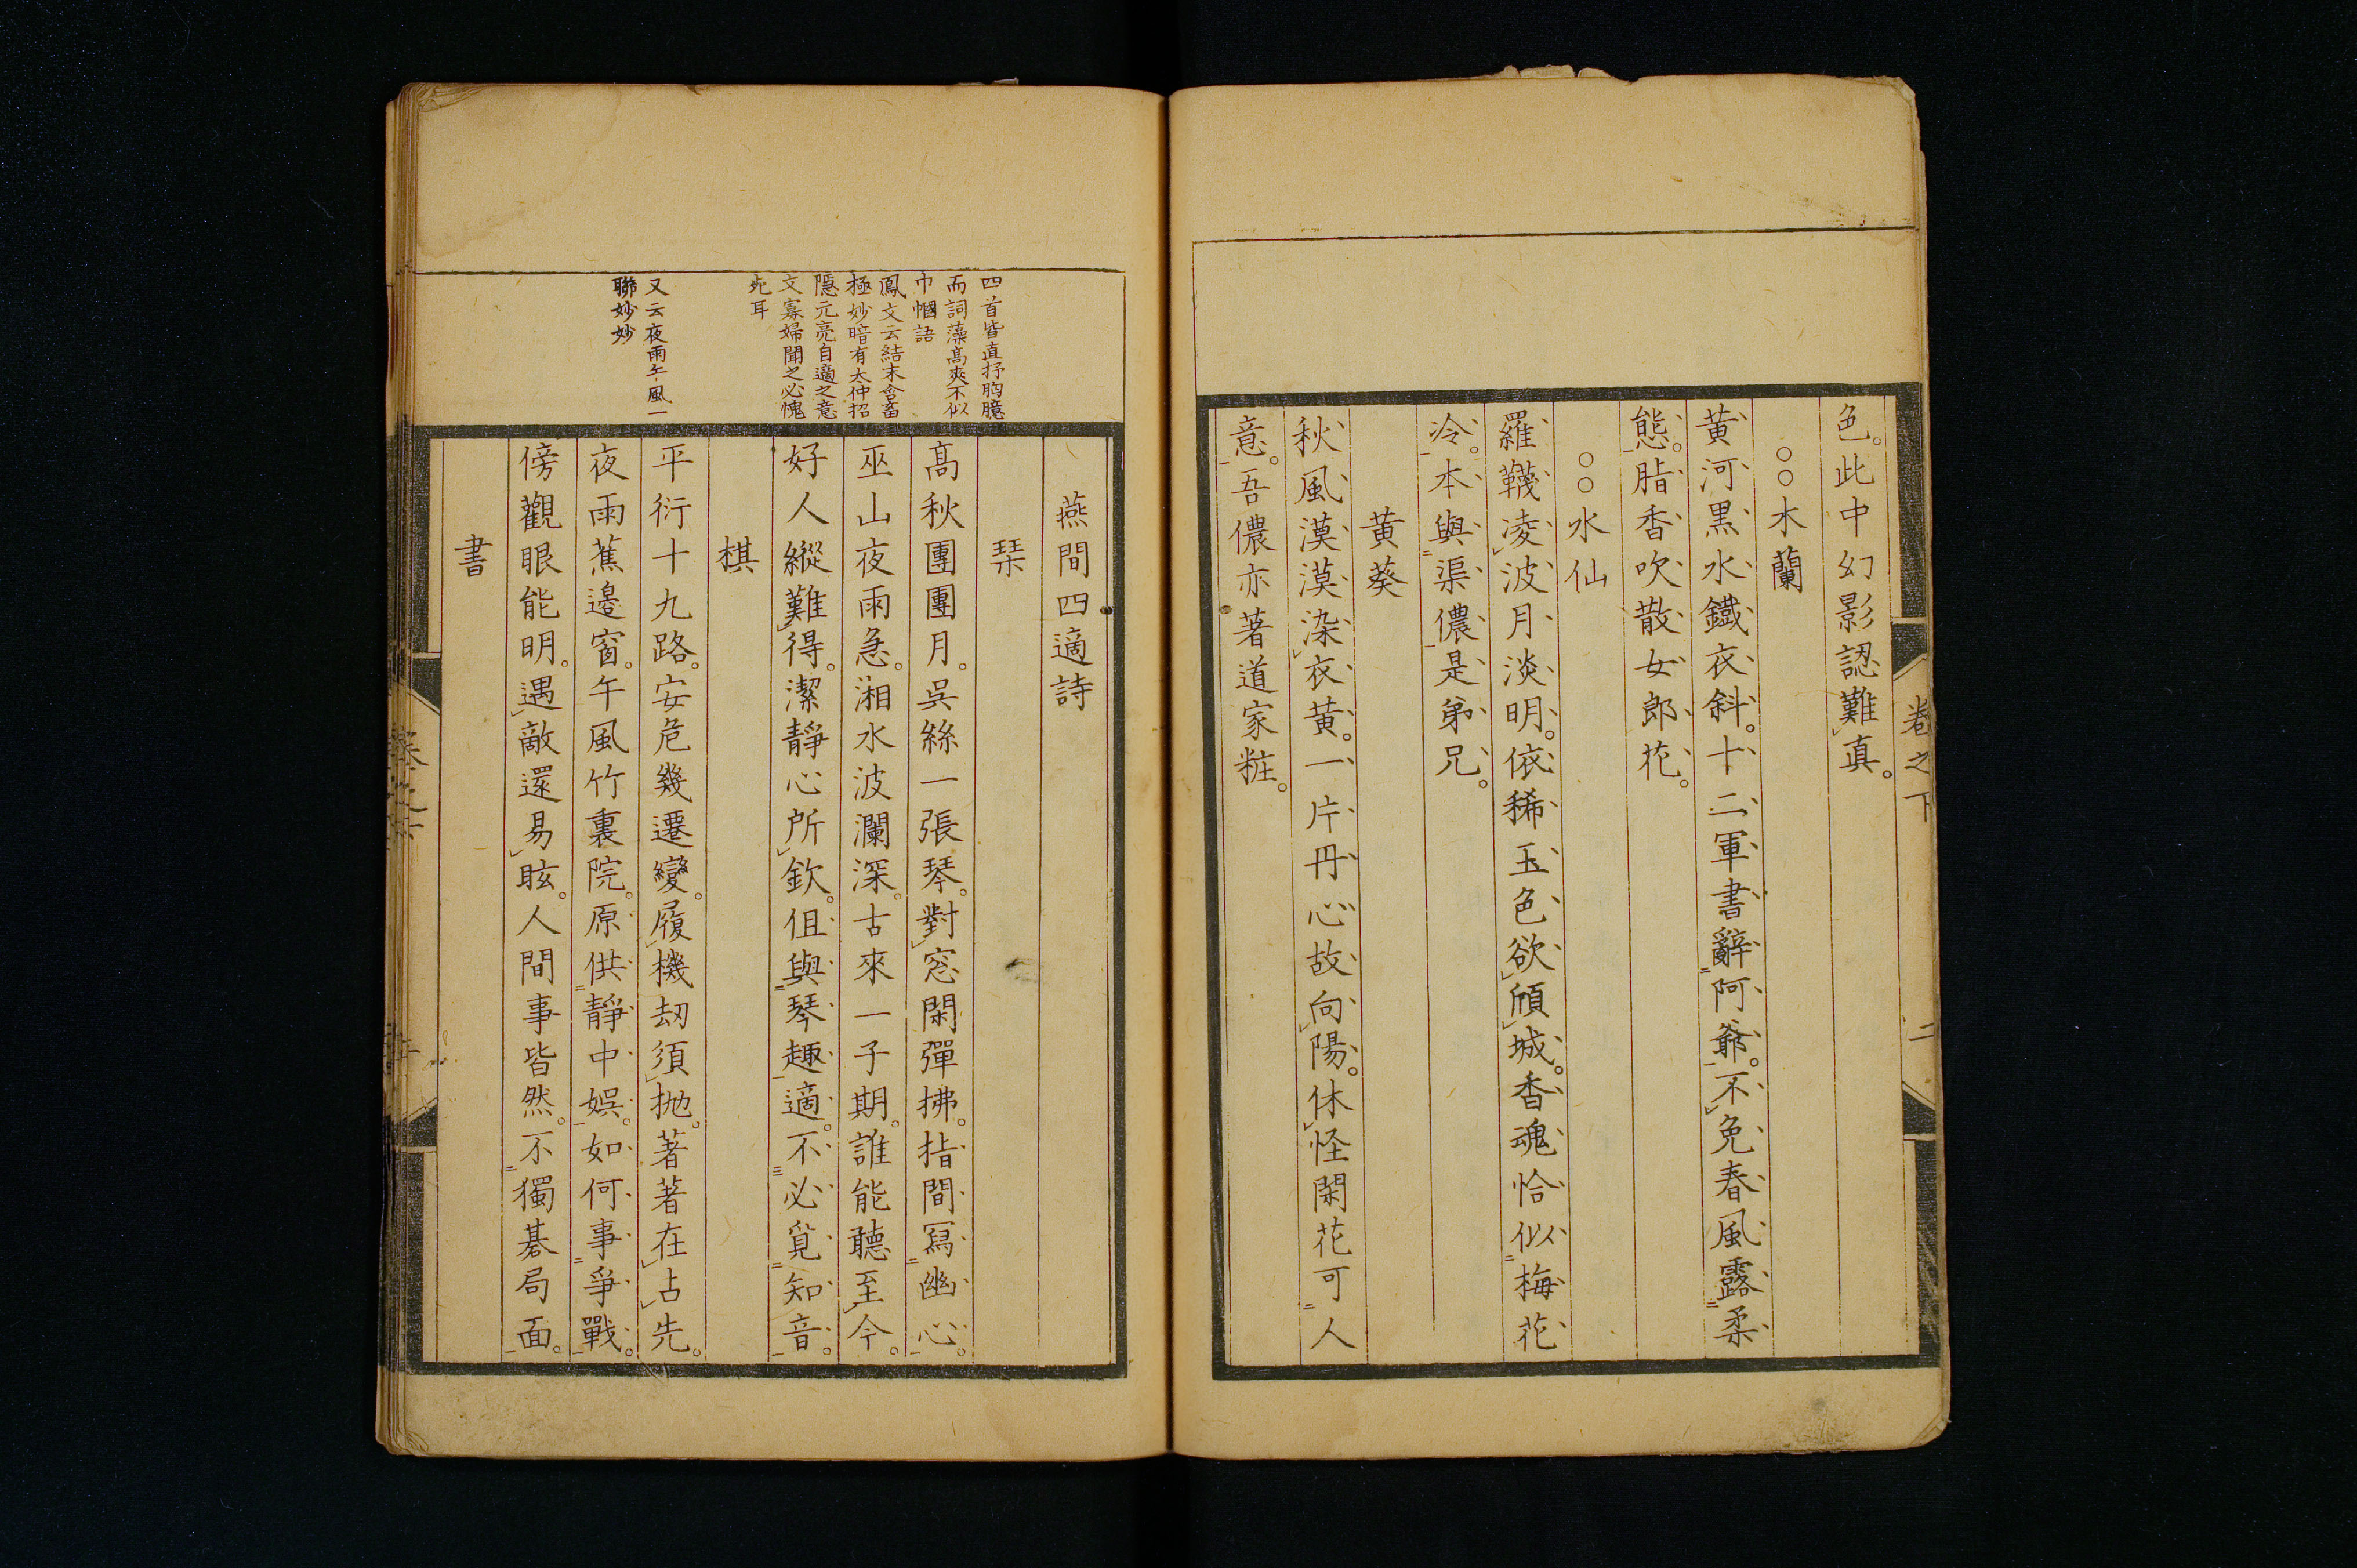 卷之下
二
色。此中幻影認難真。
○○木蘭
黃河黒水鐵衣斜。十二軍書辭阿爺。不免春風露柔
態。脂香吹散女郎花。
○○水仙
羅韈凌波月淡明。依稀玉色欲傾城。香魂恰似梅花
冷。本與渠儂是弟兄。
黃葵
秋風漠漠染衣黃。一片丹心故向陽。休怪閑花可人
意。吾儂亦著道家粧。
四首皆直抒胸臆
而詞藻高爽不似
巾幗語
鳳文云結末含畜
極妙暗有太仲招
隱元亮自適之意
文寡婦聞之必愧
死耳
又云夜雨午風一
聯妙妙
燕間四適詩
琹
高秋團團月。吳絲一張琴。對窓閑彈拂。指間寫幽心。
巫山夜雨急。湘水波瀾深。古來一子期。誰能聽至今。
好人縱難得。潔靜心所欽。但與琴趣適。不必覓知音。
棋
平衍十九路。安危幾遷變。履機劫須拋。著著在占先。
夜雨蕉邊窗。午風竹裏院。原供靜中娯。如何事爭戰。
傍觀眼能明。遇敵還易眩。人間事皆然。不獨碁局面。
書